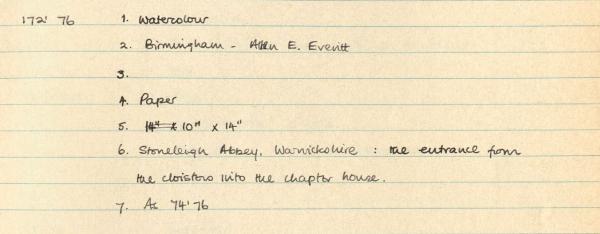 172'76 1. Watercolour
2. Birmingham - Allen E. Everitt
3.
4. Paper
5. 14" x 10" x 14"
6. Stoneleigh Abbey, Warwickshire : the entrance from
the cloisters into the chapter house.
7. As 74'76